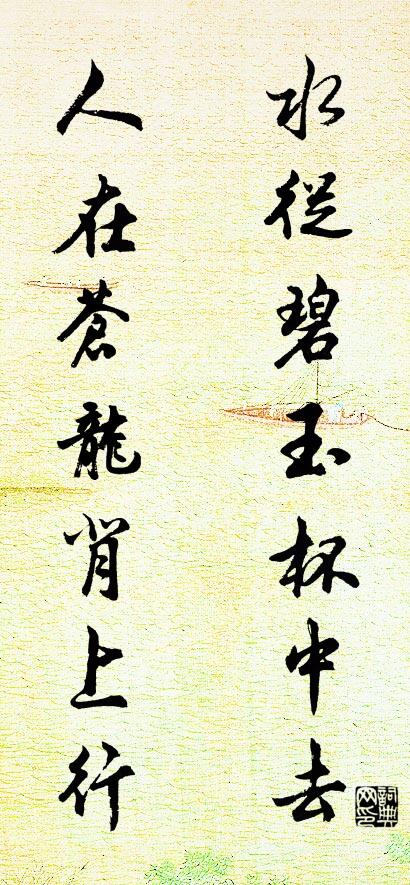 水從碧玉杯中去
人在蒼龍背上行
詞典
网印